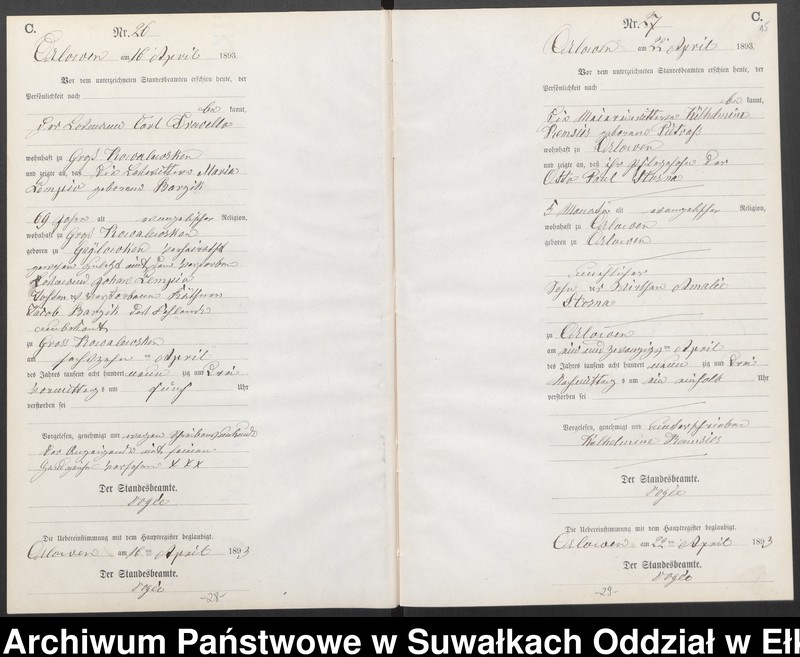 C.
Nr. 26
Orlowen am 16 April 1893.
Vor dem unterzeichneten Standesbeamten erschien heute, der
Persönlichkeit nach
be kannt,
der Losmann Carl
wohnhaft zu Gross Kowalewsken
und zeigte an, daß die Loswittwe Maria
Lempio geborene Barzik
69 Jahre alt evangelischer Religion,
wohnhaft zu Gross Kowalewsken
geboren zu verheirathet
gewesen zuletzt mit dem verstorbenen
Losmann Johan Lempio
Tochter des verstorbenen Käthner
Jacob Barzik
unbekannt
zu Gross Kowalewsken
am sechszehn ten April
des Jahres tausend acht hundert neun zig und drei
Vormittag s um fünf Uhr
verstorben sei
Vorgelesen, genehmigt und wegen Schreibensunkunde
des Anzeigenden mit seinem
Handzeichen versehen X X X
Der Standesbeamte.
Die Uebereinstimmung mit dem Hauptregister beglaubigt.
Orlowen am 16 ten April 1893
Der Standesbeamte.
-28-
C.
Nr. 27
Orlowen am 22 April 1893.
Vor dem unterzeichneten Standesbeamten erschien heute, der
Persönlichkeit nach
be kannt,
die Wilhelmine
geborene
wohnhaft zu Orlowen
und zeigte an, daß ihr Pflegesohn der
Otto Paul Stosna
5 Monate alt evangelischer Religion,
wohnhaft zu Orlowen
geboren zu Orlowen
unehelicher
Sohn der Amalie
Stosna
zu Orlowen
am ein und zwanzigsten April
des Jahres tausend acht hundert neun zig und drei
Nachmittag s um ein einhalb Uhr
verstorben sei
Vorgelesen, genehmigt und unterschrieben
Wilhelmine
Der Standesbeamte.
Die Uebereinstimmung mit dem Hauptregister beglaubigt.
Orlowen am 22 ten April 1893
Der Standesbeamte.
-29-
Archiwum Państwowe w Suwałkach Oddział w Ełk